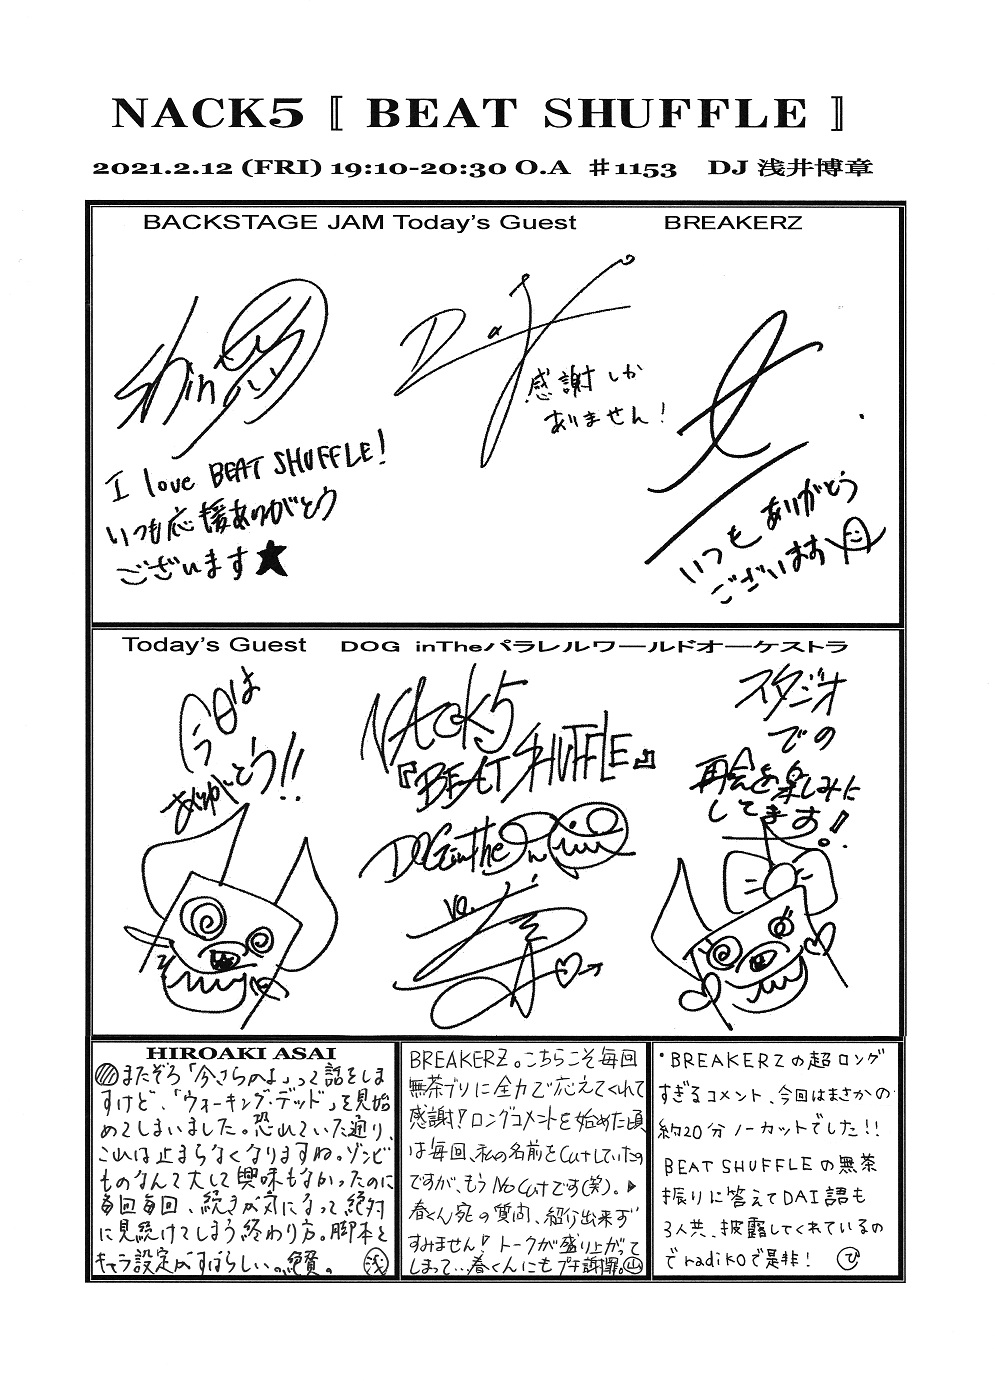 NACK5 〚 BEAT SHUFFLE 〛
2021.2.12 (FRI) 19:10-20:30 O.A ♯1153 DJ 浅井博章
BACKSTAGE JAM Today's Guest BREAKERZ
感謝しか
ありません!
I love BEAT SHUFFLE!
いつも応援ありがとう
ございます★
いつもありがとう
ございます
Today's Guest DOG inTheパラレルワールドオーケストラ
今日は
ありがとう!!
NACK5
『BEAT SHUFFLE』
DOG in the
Vo. 春
スタジオ
での
再会を楽しみに
してます!
HIROAKI ASAI
またぞろ「今さらかよ」って話をしま
すけど、「ウォーキング・デッド」を見始
めてしまいました。恐れていた通り、
これは止まらなくなりますね。ゾンビ
ものなんて大して興味もなかったのに
毎回毎回、続きが気になって絶対
に見続けてしまう終わり方。脚本と
キャラ設定がすばらしい。絶賛。 浅
BREAKERZ。こちらこそ毎回
無茶ブリに全力で応えてくれて
感謝!ロングコメントを始めた頃
は毎回、私の名前をCutしていたの
ですが、もうNoCutです(笑)。▶
春くん宛の質問、紹介出来ず
すみません!トークが盛り上がって
しまって…春くんにもプチ謝罪。山
・BREAKERZの超ロング
すぎるコメント、今回はまさかの
約20分ノーカットでした!!
BEAT SHUFFLEの無茶
振りに答えてDAI語も
3人共、披露してくれているの
でradikoで是非! ひ